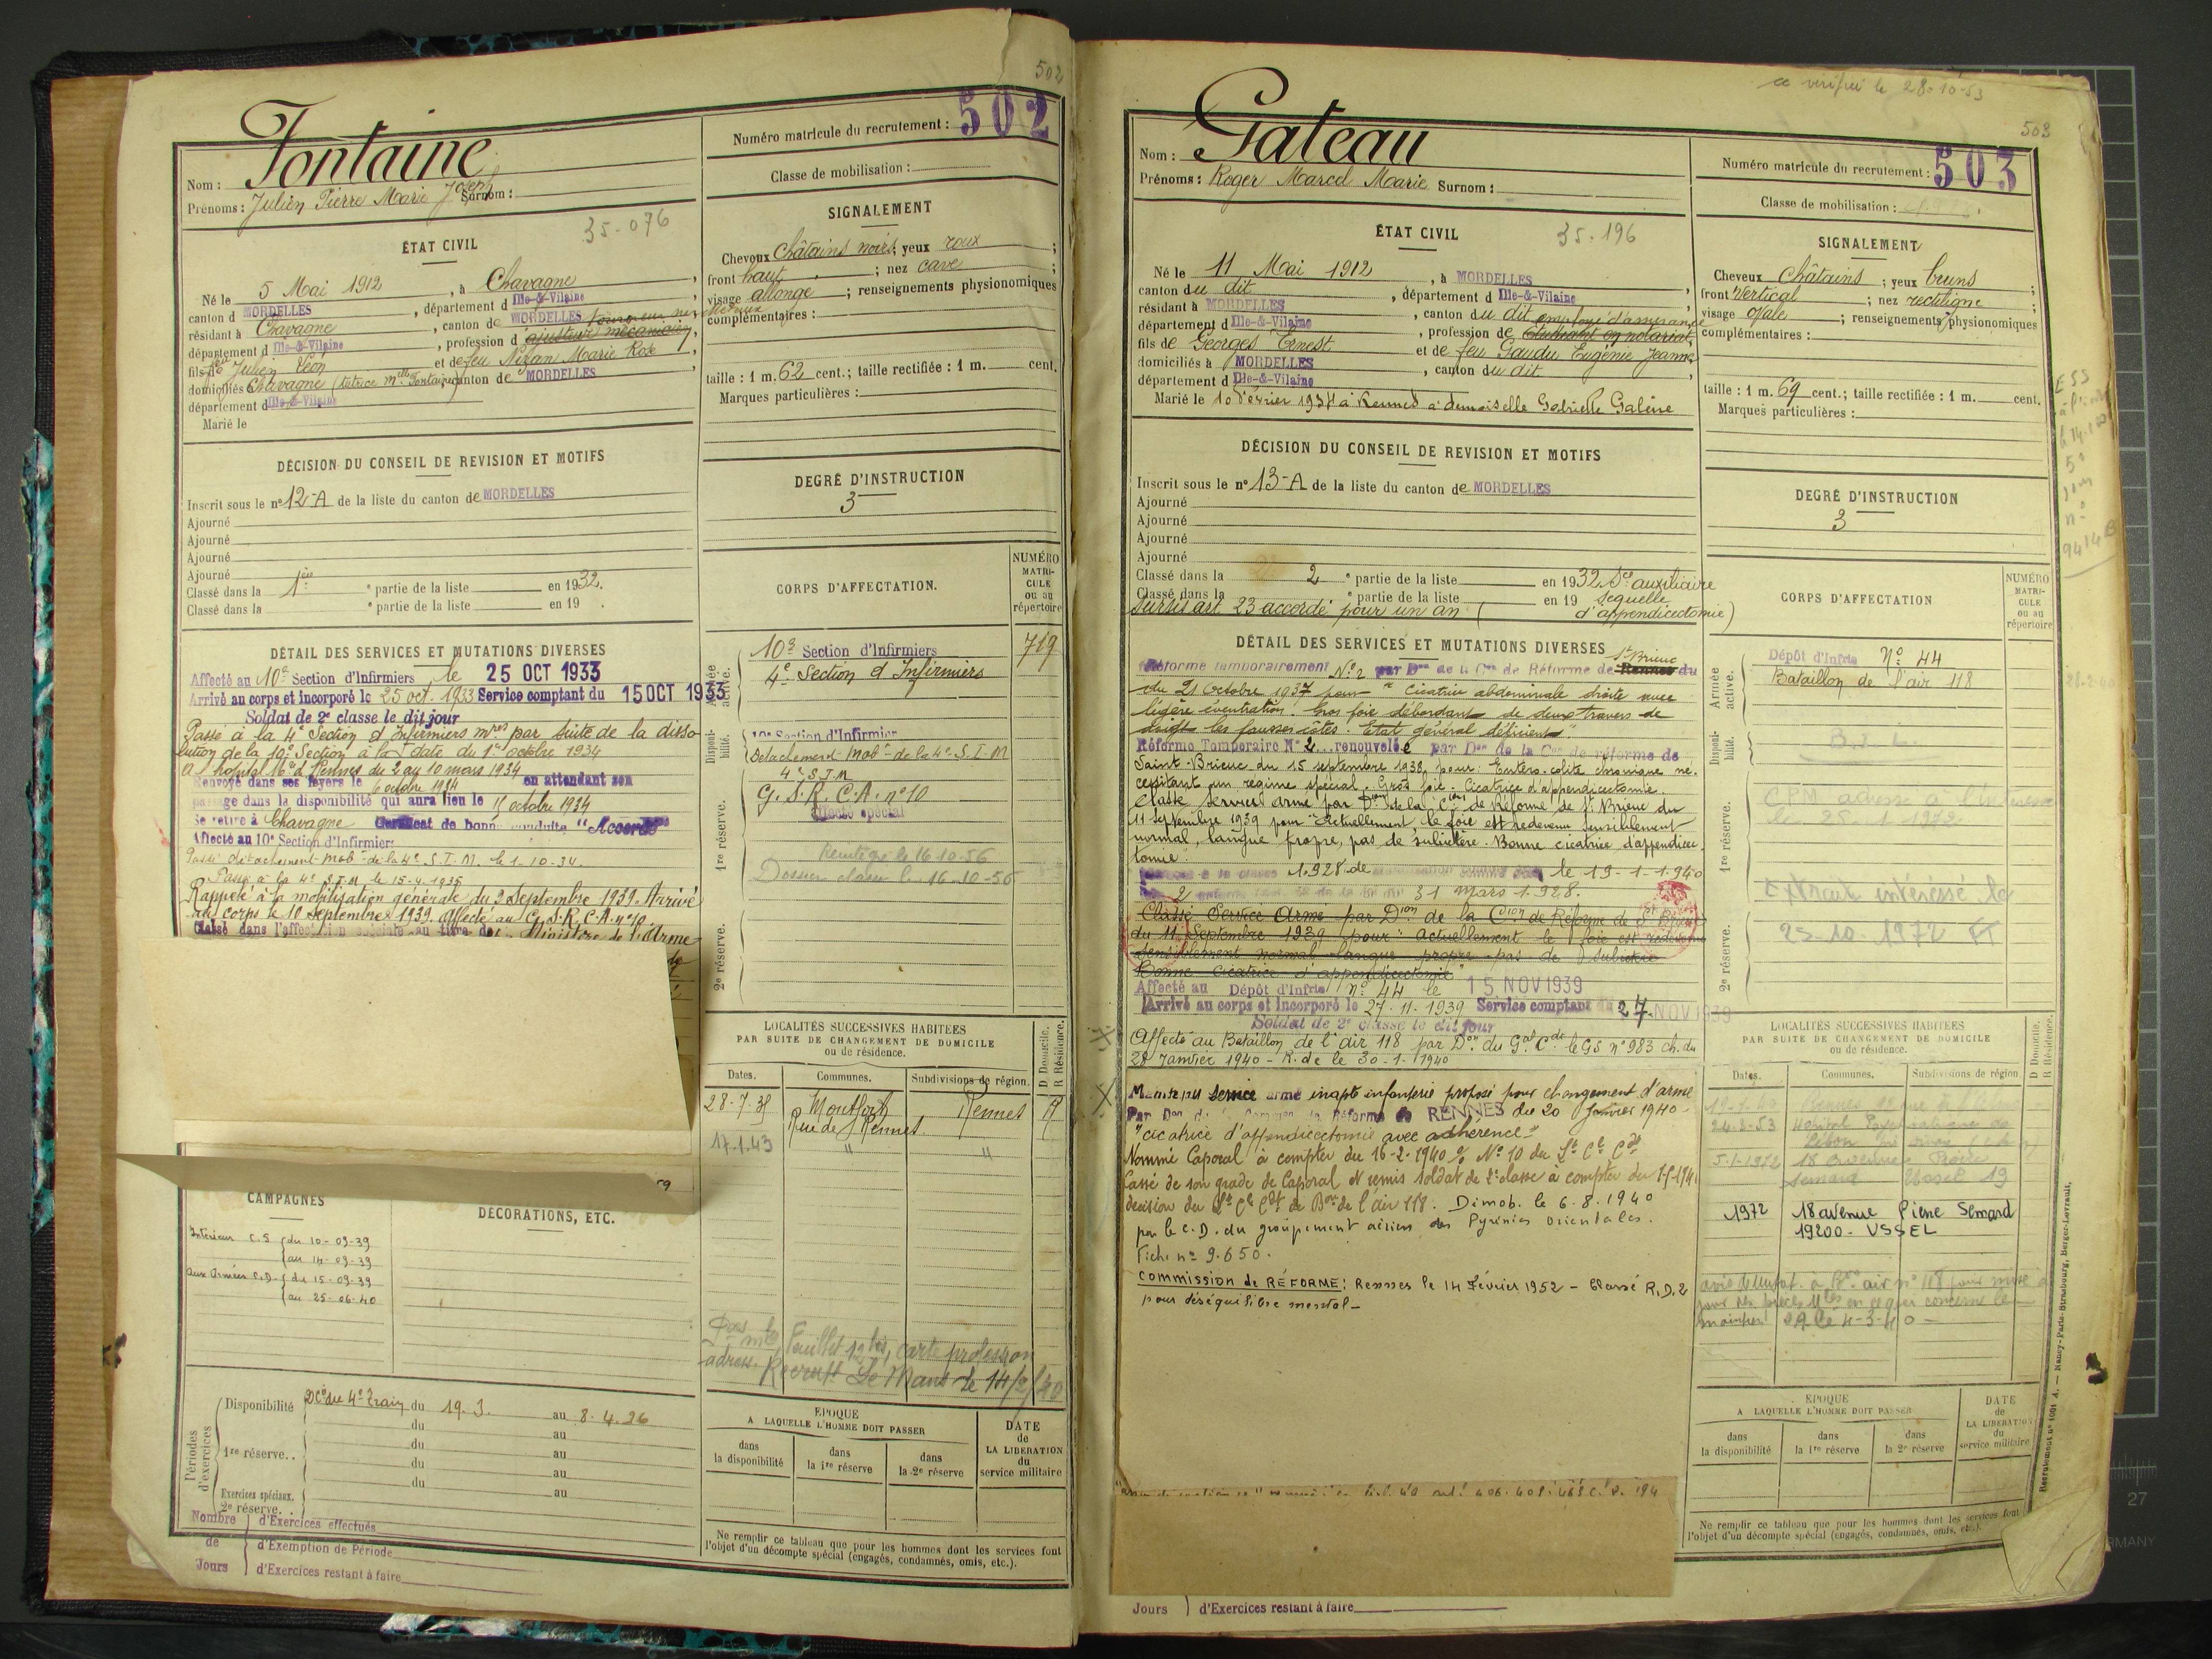 502
Fontaine
Nom :
Prénoms : Julien Pierre Marie Joseph Surnom :
Numéro matricule du recrutement : 502
Classe de mobilisation :
ÉTAT CIVIL
35-076
Né le 5 Mai 1912, à Chavagne,
canton d MORDELLES, département d Ille-&-Vilaine,
résidant à Chavagne, canton de MORDELLES
département d Ille-&-Vilaine, profession d'ajusteur mécanicien,
fils de Julien Léon et de feu Nizan Marie Rose,
domiciliés Chavagne (tutrice Mlle Fontaine) canton de MORDELLES
département d Ille-&-Vilaine
Marié le
SIGNALEMENT
Cheveux Châtains noirs; yeux roux;
front haut; nez cave;
visage allongé; renseignements physionomiques
complémentaires :
taille : 1 m. 62 cent.; taille rectifiée : 1 m. cent.
Marques particulières :
DÉCISION DU CONSEIL DE REVISION ET MOTIFS
Inscrit sous le n° 12-A de la liste du canton de MORDELLES
Ajourné
Ajourné
Ajourné
Ajourné
Classé dans la 1ère partie de la liste en 1932.
Classé dans la e partie de la liste en 19 .
DEGRÉ D'INSTRUCTION
3
CORPS D'AFFECTATION.
NUMÉRO MATRICULE ou au répertoire
DÉTAIL DES SERVICES ET MUTATIONS DIVERSES
Affecté au 10e Section d'Infirmiers le 25 OCT 1933
Arrivé au corps et incorporé le 25 oct. 1933 Service comptant du 15 OCT 1933
Soldat de 2e classe le dit jour
Passé à la 4e Section d'Infirmiers mres par suite de la disso
lution de la 10e Section à la date du 1er octobre 1934
A l'hopital Mre d Rennes du 2 au 10 mars 1934
Renvoyé dans ses foyers le 6 octobre 1934 en attendant son
passage dans la disponibilité qui aura lieu le 15 octobre 1934
Se retire à Chavagne Certificat de bonne conduite "Accordé"
Affecté au 10e Section d'Infirmiers
Passé détachement mobre de la 4e S.I.M. le 1-10-34.
Passé à la 4e S.I.M le 15-4-1935
Rappelé à la mobilisation générale du 2 Septembre 1939. Arrivé
au corps le 10 Septembre 1939. affecté au G.S.R.C.A. n°10
Classé dans l'affectation spéciale au titre de Ministère de l'Arme
Armée active.
10e Section d'Infirmiers 719
4e Section d'Infirmiers
Disponibilité.
10e Section d'Infirmiers
Détachement Mobre de la 4e S.I.M
4e S.I.M
G.S.R.C.A. n°10
Affecté spécial
1re réserve.
Réintégré le 16-10-56
Dossier classé le 16-10-56
2e réserve.
LOCALITÉS SUCCESSIVES HABITÉES
PAR SUITE DE CHANGEMENT DE DOMICILE
ou de résidence.
Dates. Communes. Subdivisions de région. D Domicile. R Résidence.
28-7-35 Montfort Rennes R
Rue de Rennes.
17.1.43 " "
CAMPAGNES
DÉCORATIONS, ETC.
Intérieur C.S. du 10-09-39
au 14-09-39
aux Armées C.D. du 15-09-39
au 25-06-40
Feuillet 12 bis, carte profession
adress. Recrutt Le Mans le 14/2/40
Périodes d'exercices
Disponibilité DCo du 4e Train du 19.3. au 8.4.36
du au
1re réserve.. du au
du au
du au
Exercices spéciaux. au
2e réserve.
Nombre de Jours
d'Exercices effectués
d'Exemption de Période
d'Exercices restant à faire
ÉPOQUE
A LAQUELLE L'HOMME DOIT PASSER
dans la disponibilité dans la 1re réserve dans la 2e réserve
DATE de LA LIBÉRATION du service militaire
Ne remplir ce tableau que pour les hommes dont les services font
l'objet d'un décompte spécial (engagés, condamnés, omis, etc.).
vérifié le 28-10-53
503
Gateau
Nom :
Prénoms : Roger Marcel Marie Surnom :
Numéro matricule du recrutement : 503
Classe de mobilisation :
ÉTAT CIVIL
35.196
Né le 11 Mai 1912, à MORDELLES,
canton du dit, département d Ille-&-Vilaine
résidant à MORDELLES, canton du dit employé d'assurance
département d Ille-&-Vilaine, profession de Etudiant en notariat,
fils de Georges Ernest et de feu Gaudu Eugénie Jeanne
domiciliés à MORDELLES, canton du dit,
département d Ille-&-Vilaine
Marié le 10 Février 1934 à Rennes à demoiselle Gabrielle Galène
SIGNALEMENT
Cheveux Châtains; yeux bruns;
front Vertical; nez rectiligne;
visage ovale; renseignements physionomiques
complémentaires :
taille : 1 m. 69 cent.; taille rectifiée : 1 m. cent.
Marques particulières :
DÉCISION DU CONSEIL DE REVISION ET MOTIFS
Inscrit sous le n° 13-A de la liste du canton de MORDELLES
Ajourné
Ajourné
Ajourné
Ajourné
Classé dans la 2 e partie de la liste en 1932 Sce auxiliaire
Classé dans la e partie de la liste en 19 sequelle
Sursis art. 23 accordé pour un an ( d'appendicectomie)
DEGRÉ D'INSTRUCTION
3
CORPS D'AFFECTATION
NUMÉRO MATRICULE ou au répertoire
DÉTAIL DES SERVICES ET MUTATIONS DIVERSES
Réformé temporairement N° 2 par Don de la Con de Réforme de Rennes St Brieuc du
du 21 Octobre 1937 pour "Cicatrice abdominale droite avec
légère éventration. Gros foie débordant de deux travers de
doigt les fausses côtes. Etat général déficient".
Réforme Temporaire N° 2 renouvelée par Don de la Con de réforme de
Saint-Brieuc du 15 septembre 1938, pour: Entéro-colite chronique né
cessitant un régime spécial. Gros foie. Cicatrice d'appendicectomie.
Classé service armé par Don de la Con de Réforme de St Brieuc du
11 septembre 1939 pour "Actuellement, le foie est redevenu sensiblement
normal, langue propre, pas de subictère. Bonne cicatrice d'appendicec
tomie".
1.928 de le 19-1-1.940
2 enfants 31 Mars 1.928.
Classé Service Armé par Dion de la Cion de Réforme de St Brieuc
du 11 Septembre 1939 pour "actuellement le foie est redevenu
sensiblement normal langue propre pas de subictère
Bonne cicatrice d'appendicectomie"
Affecté au Dépôt d'Infrie n° 44 le 15 NOV 1939
Arrivé au corps et incorporé le 27-11-1939 Service comptant du 27 NOV 1939
Soldat de 2e classe le dit jour
Affecté au Bataillon de l'air 118 par Don du Gal Cdt le G.S n° 983 ch. du
28 Janvier 1940 - R. de le 30-1-1940
Maintenu service armé inapte infanterie proposé pour changement d'arme
Par Don de la Common de Réforme de RENNES du 20 Janvier 1940 -
"cicatrice d'appendicectomie avec adhérence"
Nommé Caporal à compter du 16-2-1940 % N° 10 du Lt Cl Cdt
Cassé de son grade de Caporal et remis soldat de 2e classe à compter du
décision du Lt Cl Cdt de Bon de l'air 118. Démob. le 6.8.1940
par le C.D. du groupement aérien des Pyrénées Orientales.
Fiche n° 9.650.
COMMISSION de RÉFORME: Rennes le 14 Février 1952 - Classé R.D.2
pour déséquilibre mental -
Jours d'Exercices restant à faire
Armée active.
Dépôt d'Infrie N° 44
Bataillon de l'air 118
Disponibilité.
1re réserve.
25-1-1972
Extrait intéressé le
25-10-1972 FT
2e réserve.
LOCALITÉS SUCCESSIVES HABITÉES
PAR SUITE DE CHANGEMENT DE DOMICILE
ou de résidence.
Dates. Communes. Subdivisions de région. D Domicile. R Résidence.
24-2-53
5-1-1972 18 avenue Pierre
Semard Ussel 19
1972 18 avenue Pierre Semard
19200 - USSEL
ÉPOQUE
A LAQUELLE L'HOMME DOIT PASSER
dans la disponibilité dans la 1re réserve dans la 2e réserve
DATE de LA LIBÉRATION du service militaire
Ne remplir ce tableau que pour les hommes dont les services font
l'objet d'un décompte spécial (engagés, condamnés, omis, etc.).
Recrutement n° 1001 A. — Nancy-Paris-Strasbourg, Berger-Levrault.
27